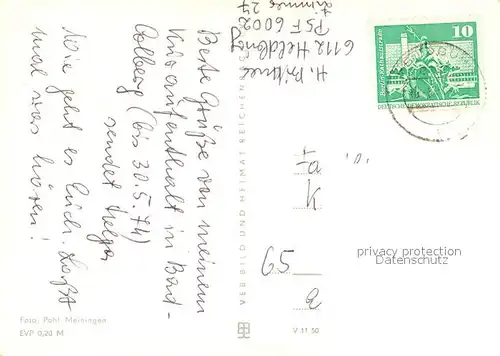 H. Büttner
6112 Heldburg
PSF 6002
Zimmer 27
Beste Grüße von meinem
Kuraufenthalt in Bad-
Colberg (bis 30.5.74)
sendet Helga
Wie geht es Euch. Laßt
mal was hören!
10
DEUTSCHE DEMOKRATISCHE REPUBLIK
VEB BILD UND HEIMAT REICHENBACH
65
privacy protection
Datenschutz
Foto: Pohl Meiningen
EVP 0,20 M
V 11 50